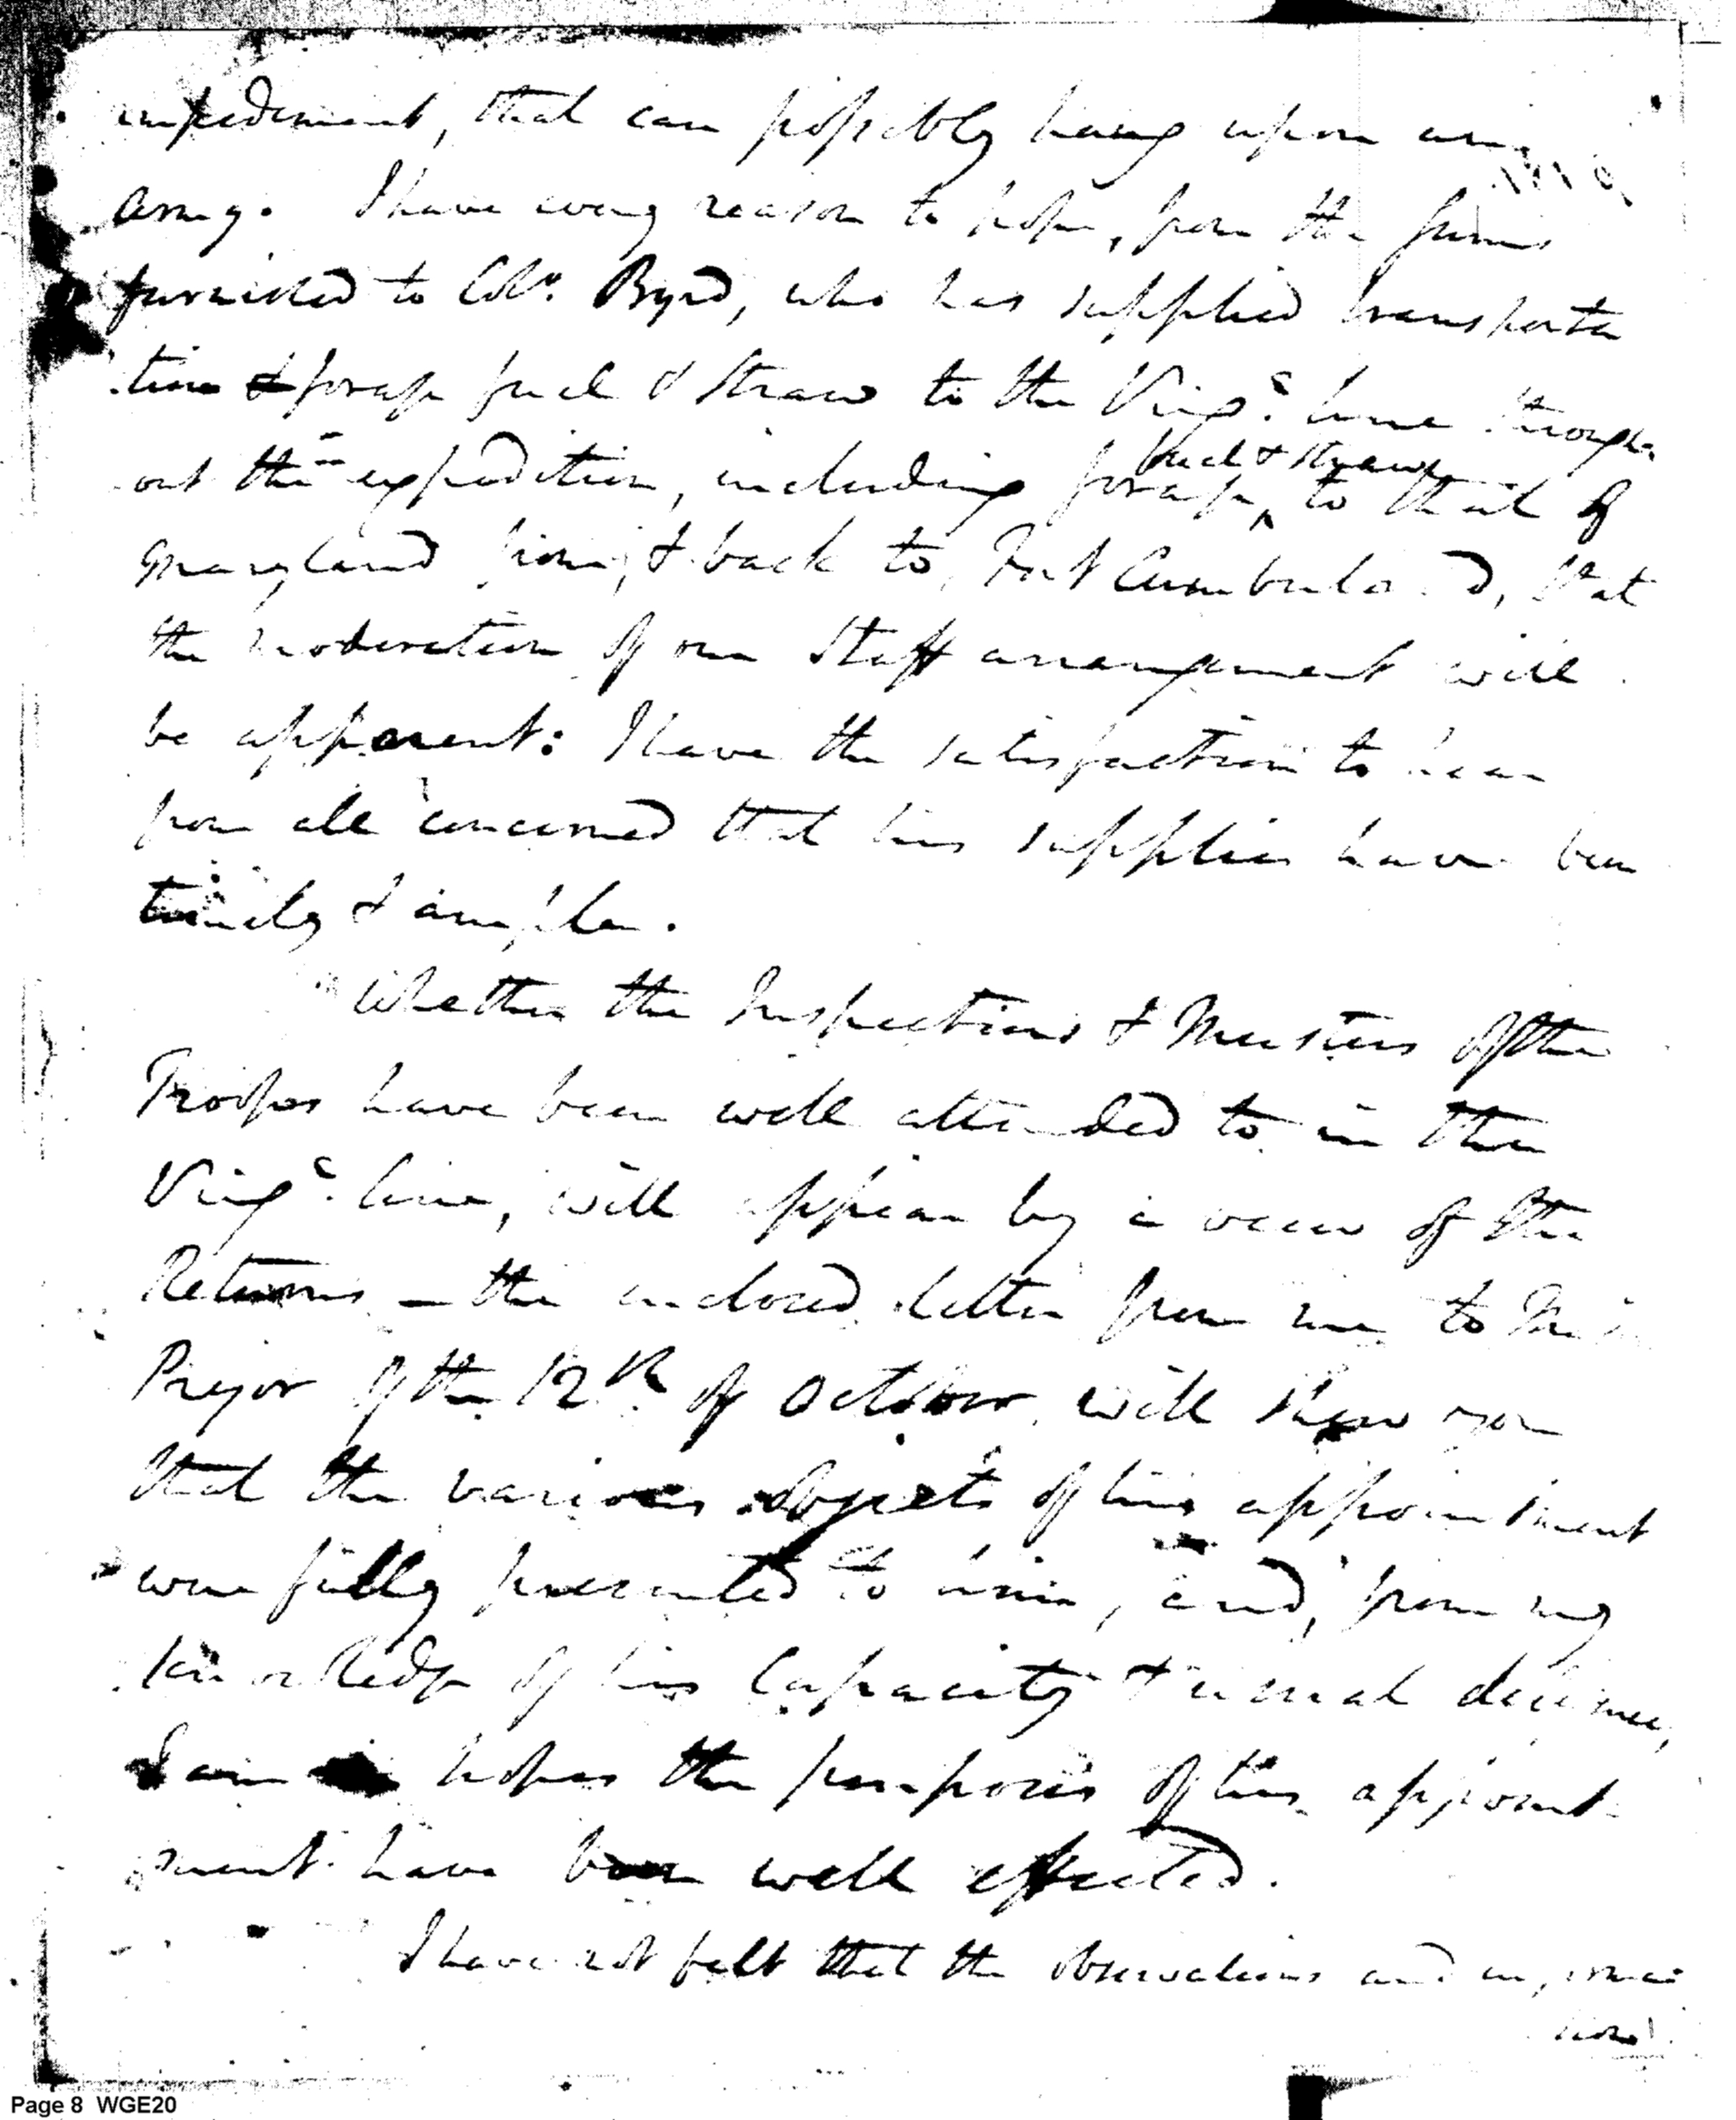 impediment, that can possibly hang upon an
army. I have every reason to hope, from the sums
furnished to Colo. Byrd, who has supplied transporta
tion & forage fuel & straw to the Virga. line through-
out the expedition, including forage, fuel & straw, to that of
Maryland from, & back to, Fort Cumberland, that
the moderation of our Staff arrangement will
be apparent: I have the satisfaction to hear
from all concerned that his supplies have been
timely & ample.
Whether the Inspections & Musters of the
Troops have been well attended to in the
Virga. line, will appear by a view of the
Returns — the enclosed letter from me to
Pryor of the 12th of October will shew you
that the various objects of his appointment
were fully presented to him, and, from my
knowledge of his Capacity &
I am hopes the purposes of his appoint
ment have been well effected.
I have not felt that the observations and
Page 8 WGE20